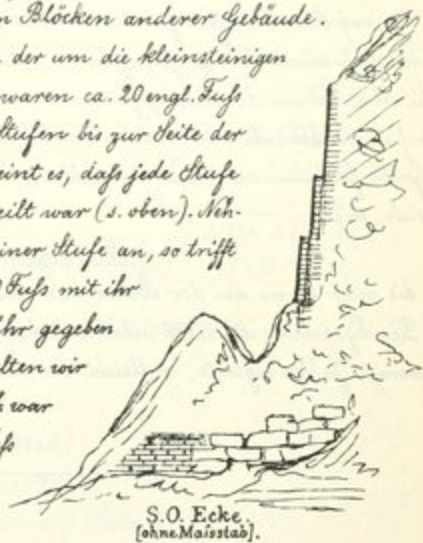 n Blöcken anderer Gebäude.
der um die kleinsteinigen
waren ca. 20 engl. Fuſs
Stufen bis zur Seite der
eint es, daſs jede Stufe
eilt war (s. oben). Neh-
iner Stufe an, so trifft
Fuſs mit ihr
hr gegeben
lten wir
war
ſs
S.O. Ecke.
[ohne Maisstab].